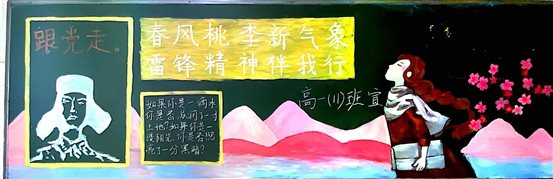 跟光走。
春风桃李新气象
雷锋精神伴我行
高一(11)班宣
如果你是一滴水
你是否滋润了一寸
土地?如果你是一
缕阳光,你是否照
亮了一分黑暗?